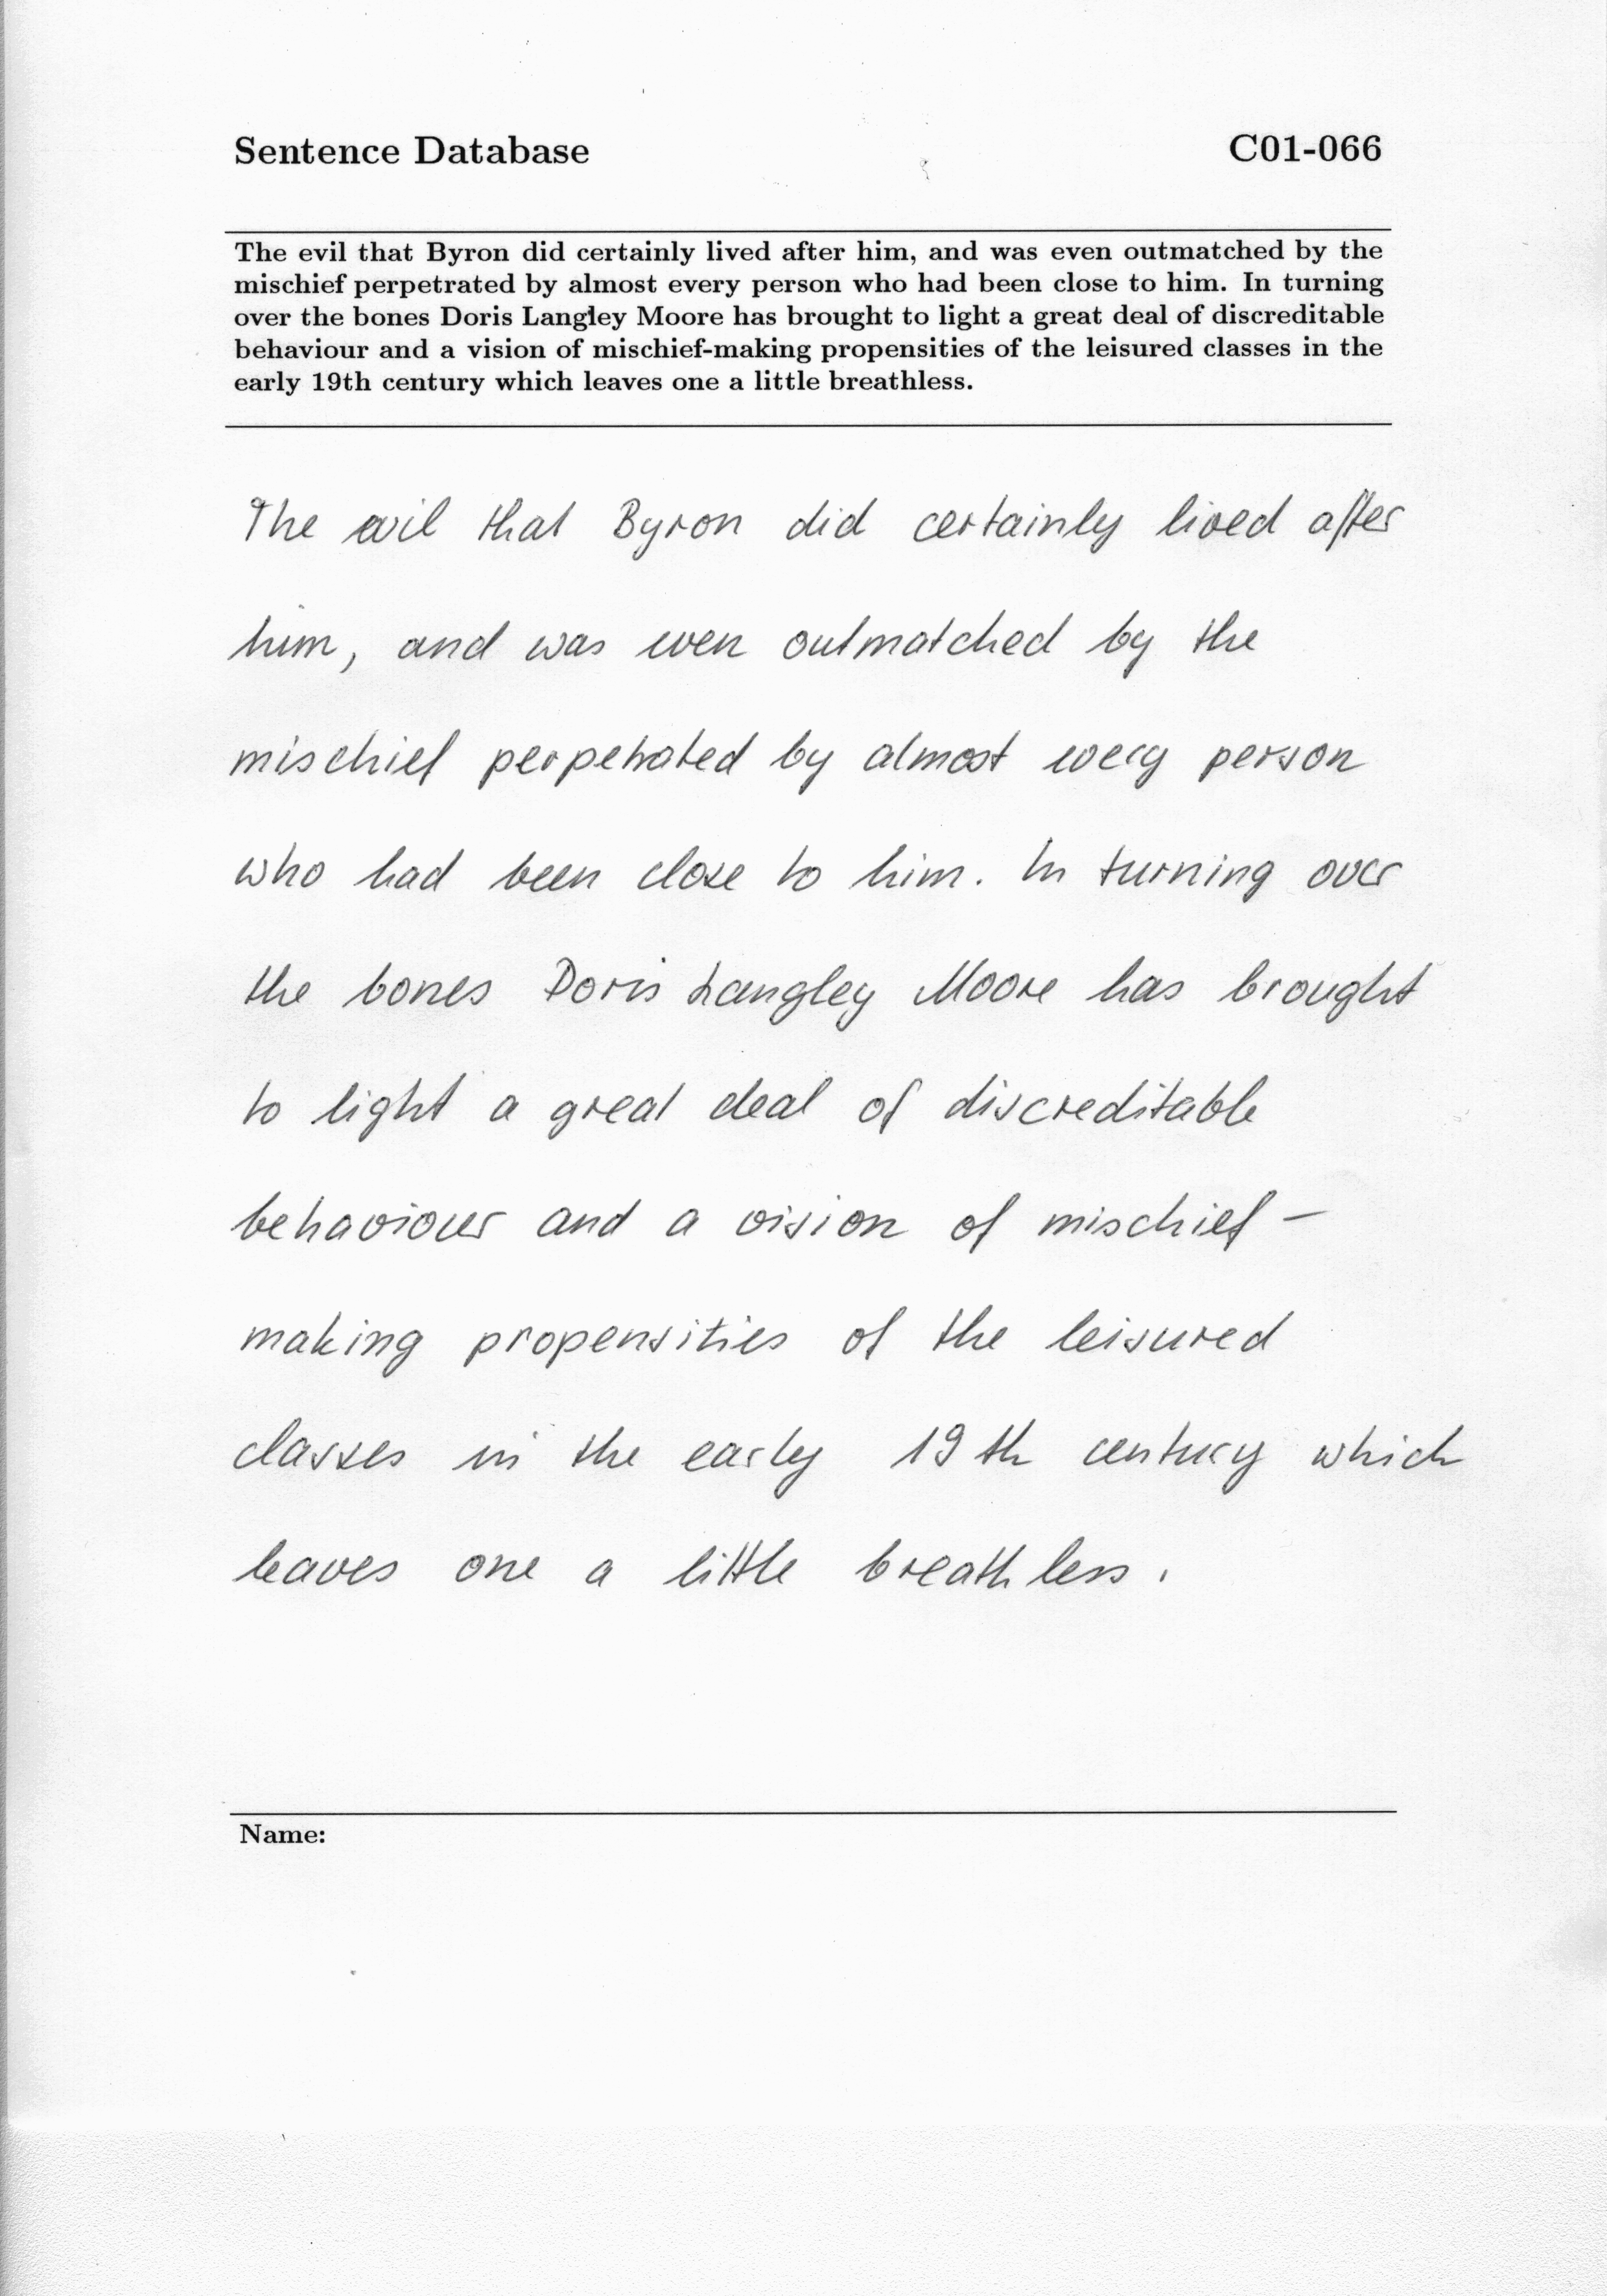 Sentence Database C01-066
The evil that Byron did certainly lived after him, and was even outmatched by the
mischief perpetrated by almost every person who had been close to him. In turning
over the bones Doris Langley Moore has brought to light a great deal of discreditable
behaviour and a vision of mischief-making propensities of the leisured classes in the
early 19th century which leaves one a little breathless.
The evil that Byron did certainly lived after
him, and was even outmatched by the
mischief perpetrated by almost every person
who had been close to him. In turning over
the bones Doris Langley Moore has brought
to light a great deal of discreditable
behaviour and a vision of mischief-
making propensities of the leisured
classes in the early 19th century which
leaves one a little breathless.
Name: